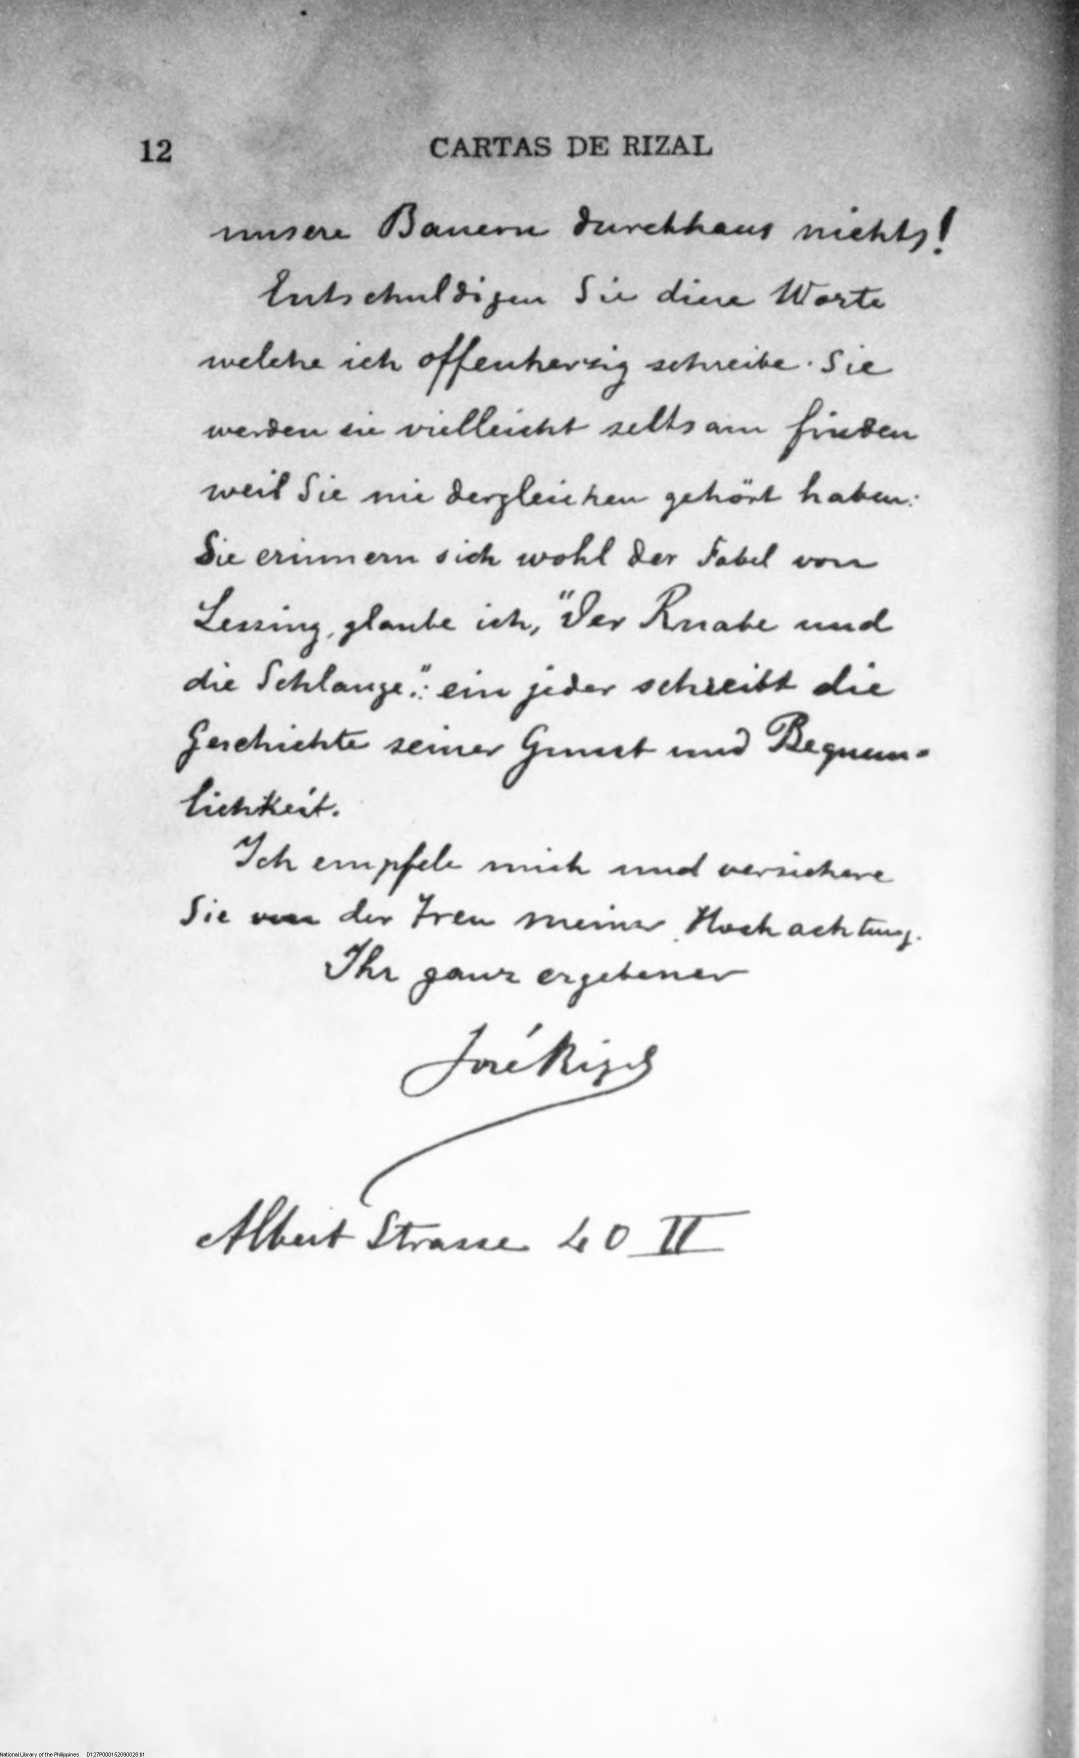 12 CARTAS DE RIZAL
unsere Bauern durchhaus nichts!
Entschuldigen Sie diese Worte
welche ich offenherzig schreibe. Sie
werden sie vielleicht seltsam finden
weil Sie nie dergleichen gehört haben:
Sie erinnern sich wohl der Fabel von
Lessing, glaube ich, "Der Knabe und
die Schlange": ein jeder schreibt die
Geschichte seiner Gunst und Bequem-
lichkeit.
Ich empfele mich und versichere
Sie von der Treu meiner Hochachtung.
Ihr ganz ergebener
José Rizal
Albert Strasse 40 II
National Library of the Philippines